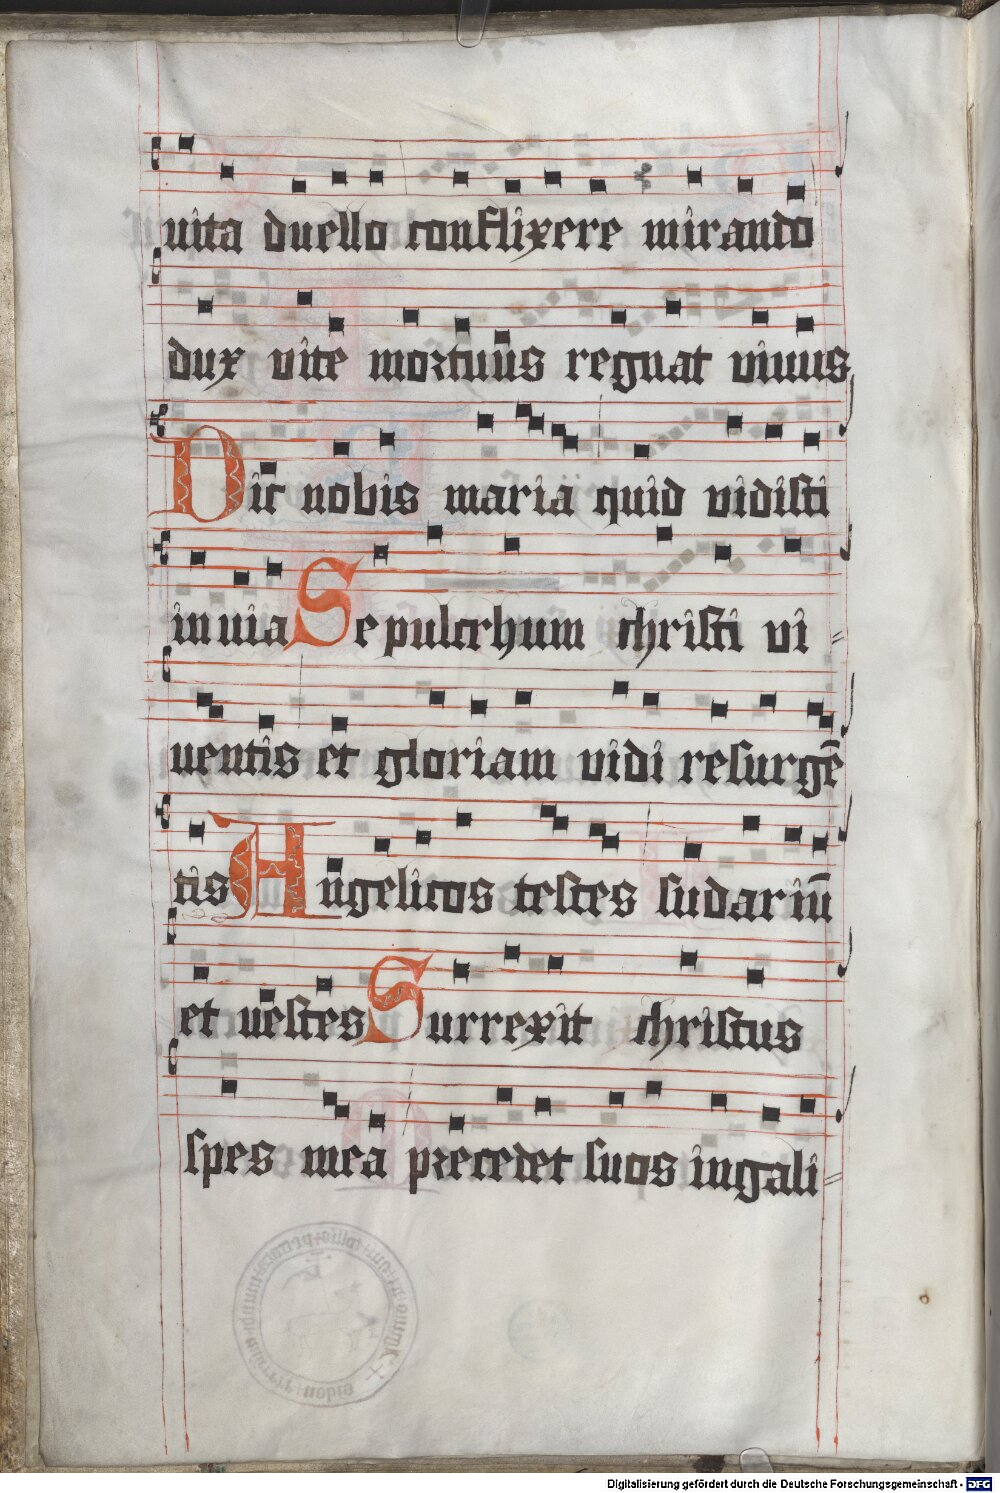 uita duello conflixere mirando
dux vite mortuus regnat viuus
Dic nobis maria quid vidisti
in uia Sepulcrhum christi vi=
uentis et gloriam vidi resurgē
tis Angelicos testes sudariū
et uestes Surrexit christus
spes mea precedet suos in gali=
Digitalisierung gefördert durch die Deutsche Forschungsgemeinschaft - DFG